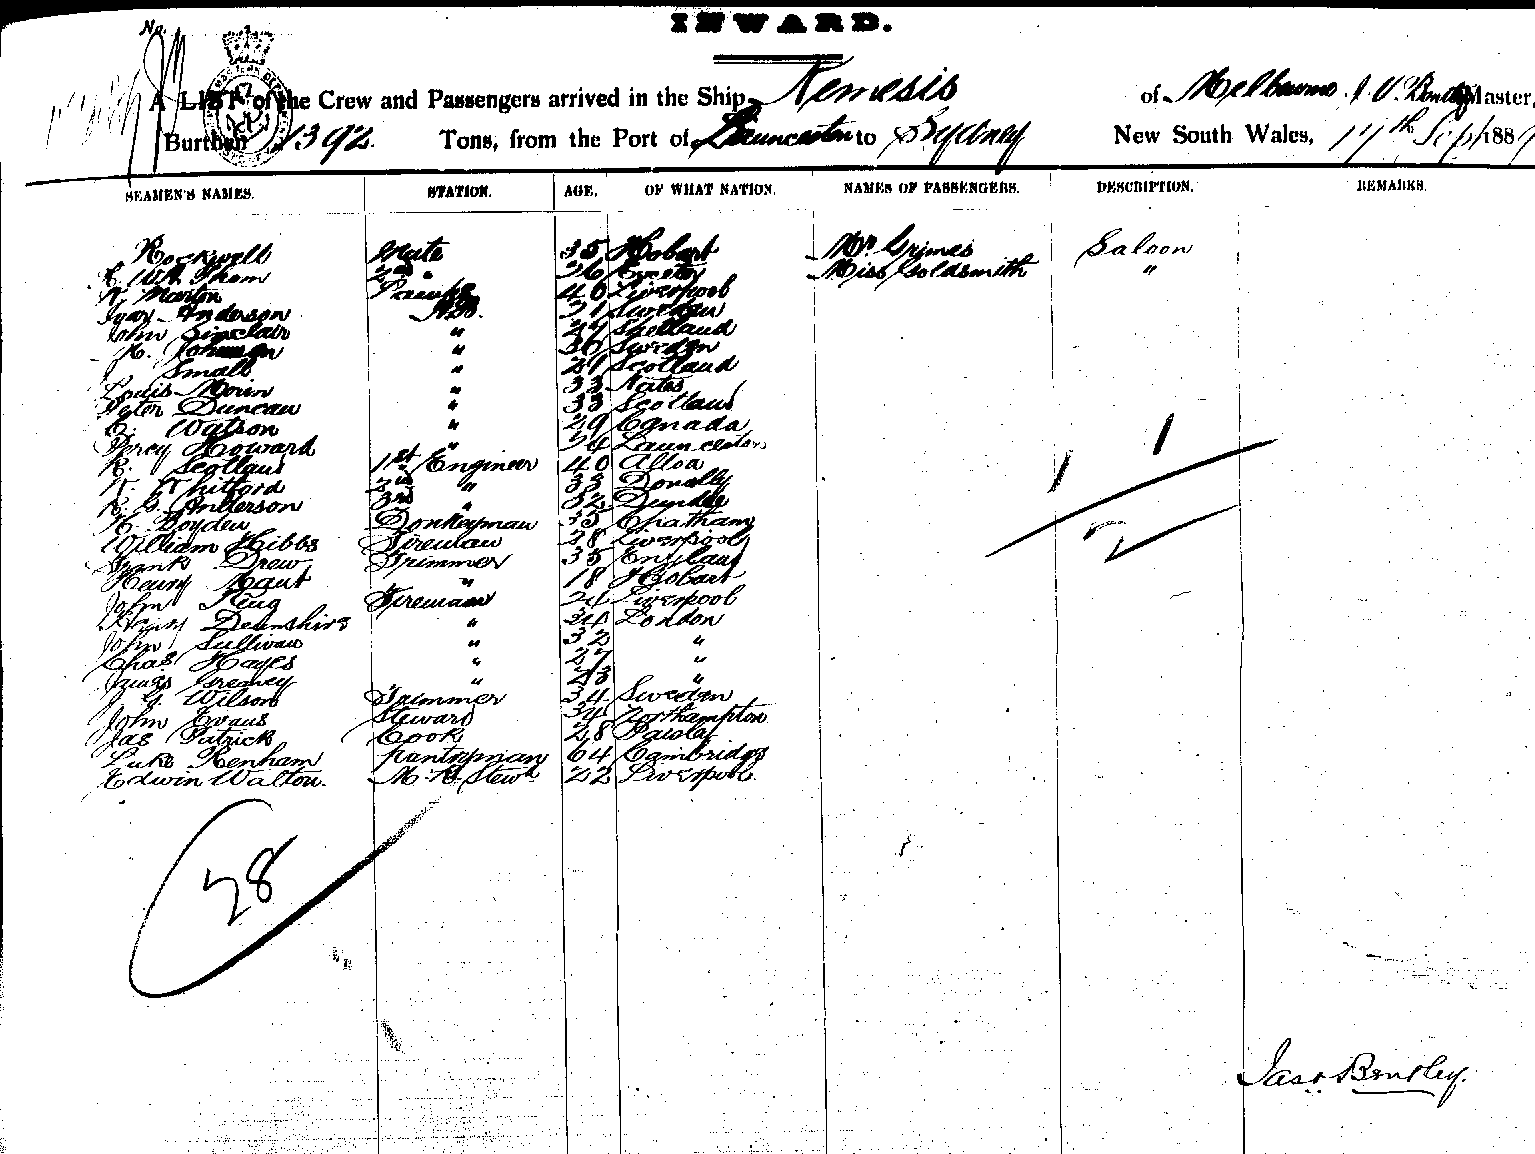 No.
INWARD.
A LIST of the Crew and Passengers arrived in the Ship Nemesis of Melbourne Master,
Burthen 1392 Tons, from the Port of Launceston to Sydney New South Wales, 17th Sept 188
SEAMEN'S NAMES. STATION. AGE, OF WHAT NATION. NAMES OF PASSENGERS. DESCRIPTION. REMARKS.
Rockwell Mate 35 Hobart Mr Grimes Saloon
2nd " 36 Miss Goldsmith "
Martin 40 Liverpool
Ivar Anderson A.B. 31 Sweden
John Sinclair " 27 Shetland
Johnson " 30 Sweden
J Small " 29 Scotland
Louis Morin " 33
Peter Duncan " 33 Scotland
Watson " 29 Canada
Percy Howard " 24 Launceston
R. 1st Engineer 40 Alloa
Whitford 2nd " 33
R G Anderson 3rd " 32 Dundee
H. Boyden Donkeyman 35 Chatham
William Hibbs Fireman 28 Liverpool
Frank Drew Trimmer 35 England
Henry " 18 Hobart
John King Fireman 24 Liverpool
Henry Devonshire " 34 London
John Sullivan " 32 "
Chas Hayes " 27 "
James " 23 "
J. G. Wilson Trimmer 34 Sweden
John Evans Steward 34 Northampton
Jas Patrick Cook 28 Paisley
Luke Renham Pantryman 64 Cambridge
Edwin Walton. M. R. Stewd 22 Liverpool.
1 1
2
28
Jas Bentley.